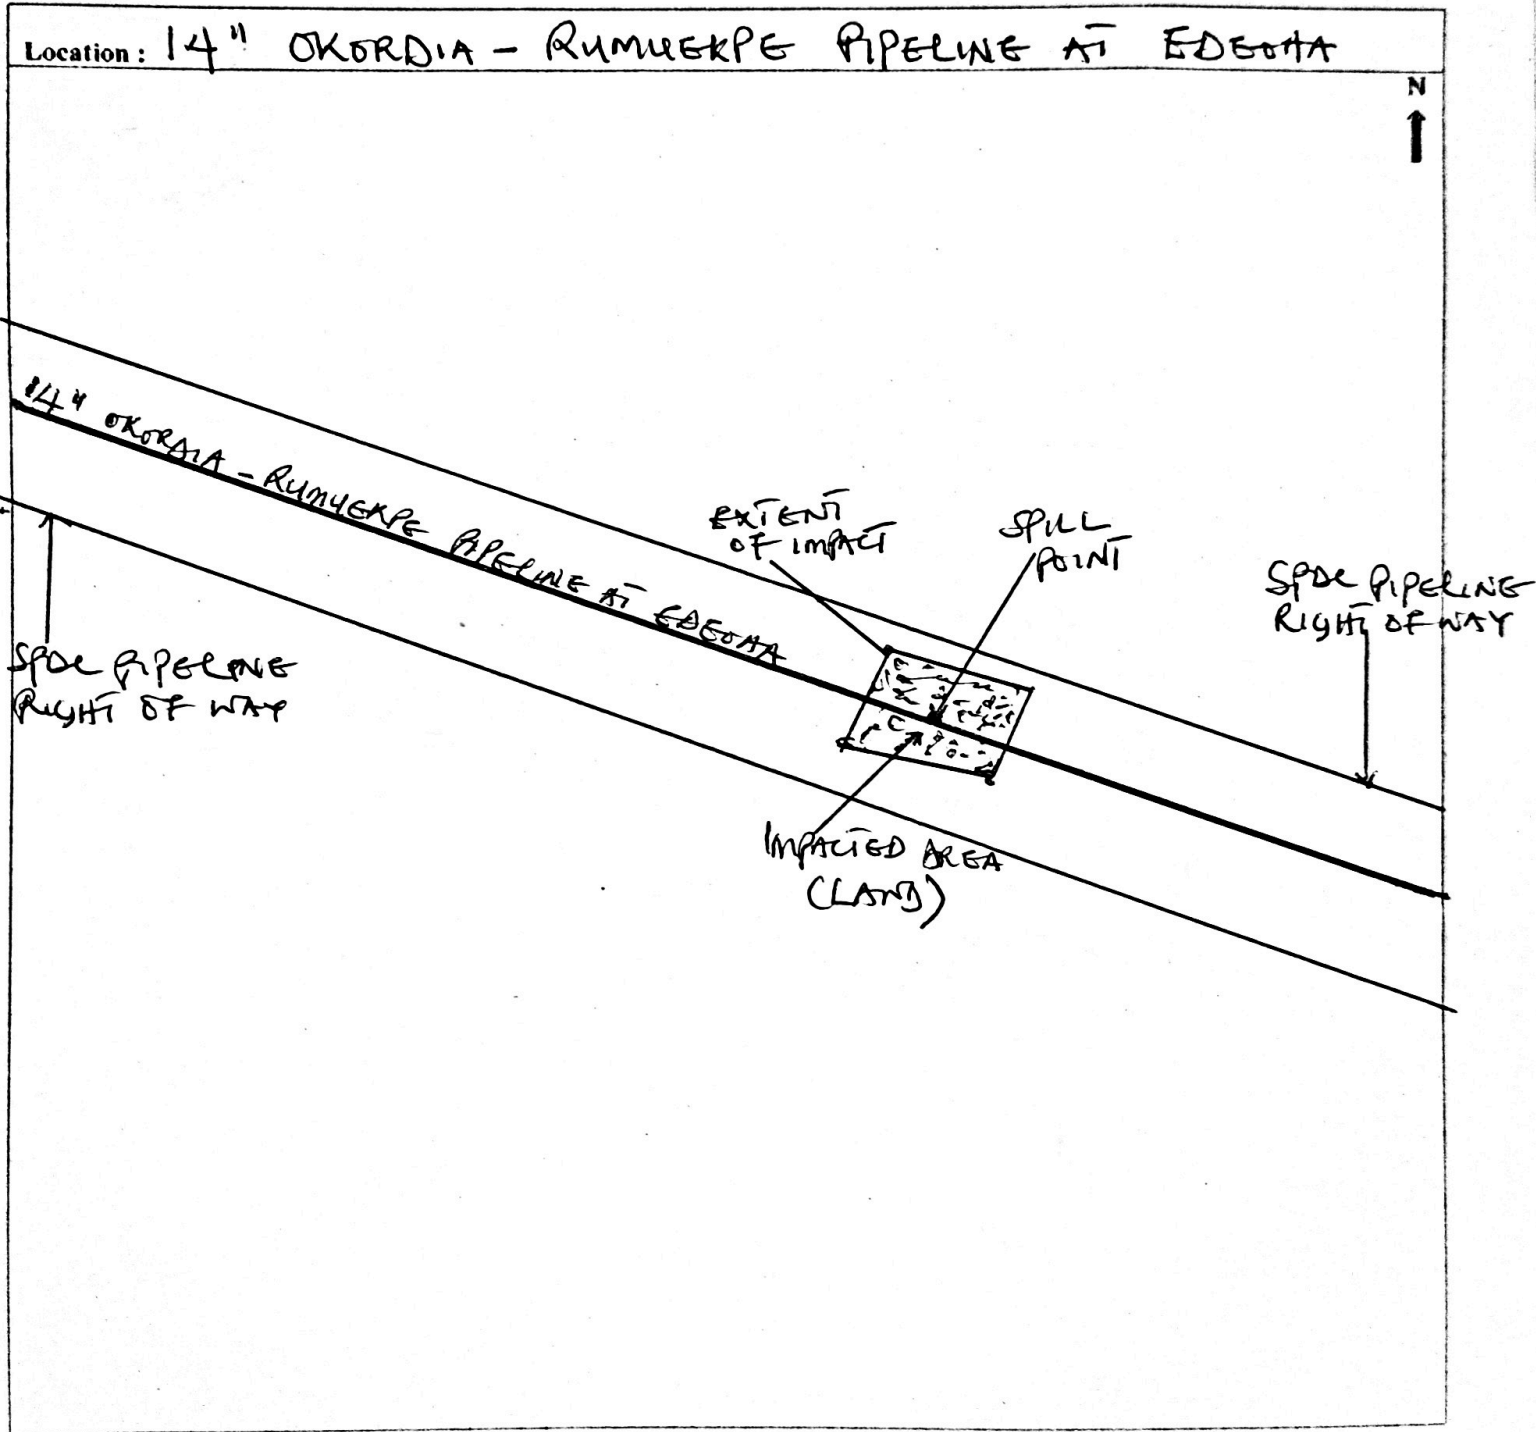 Location : 14" OKORDIA - RUMUEKPE PIPELINE AT EDEOHA
N
14" OKORDIA - RUMUEKPE PIPELINE AT EDEOHA
EXTENT
OF IMPACT
SPILL
POINT
SPDC PIPELINE
RIGHT OF WAY
SPDC PIPELINE
RIGHT OF WAY
IMPACTED AREA
(LAND)